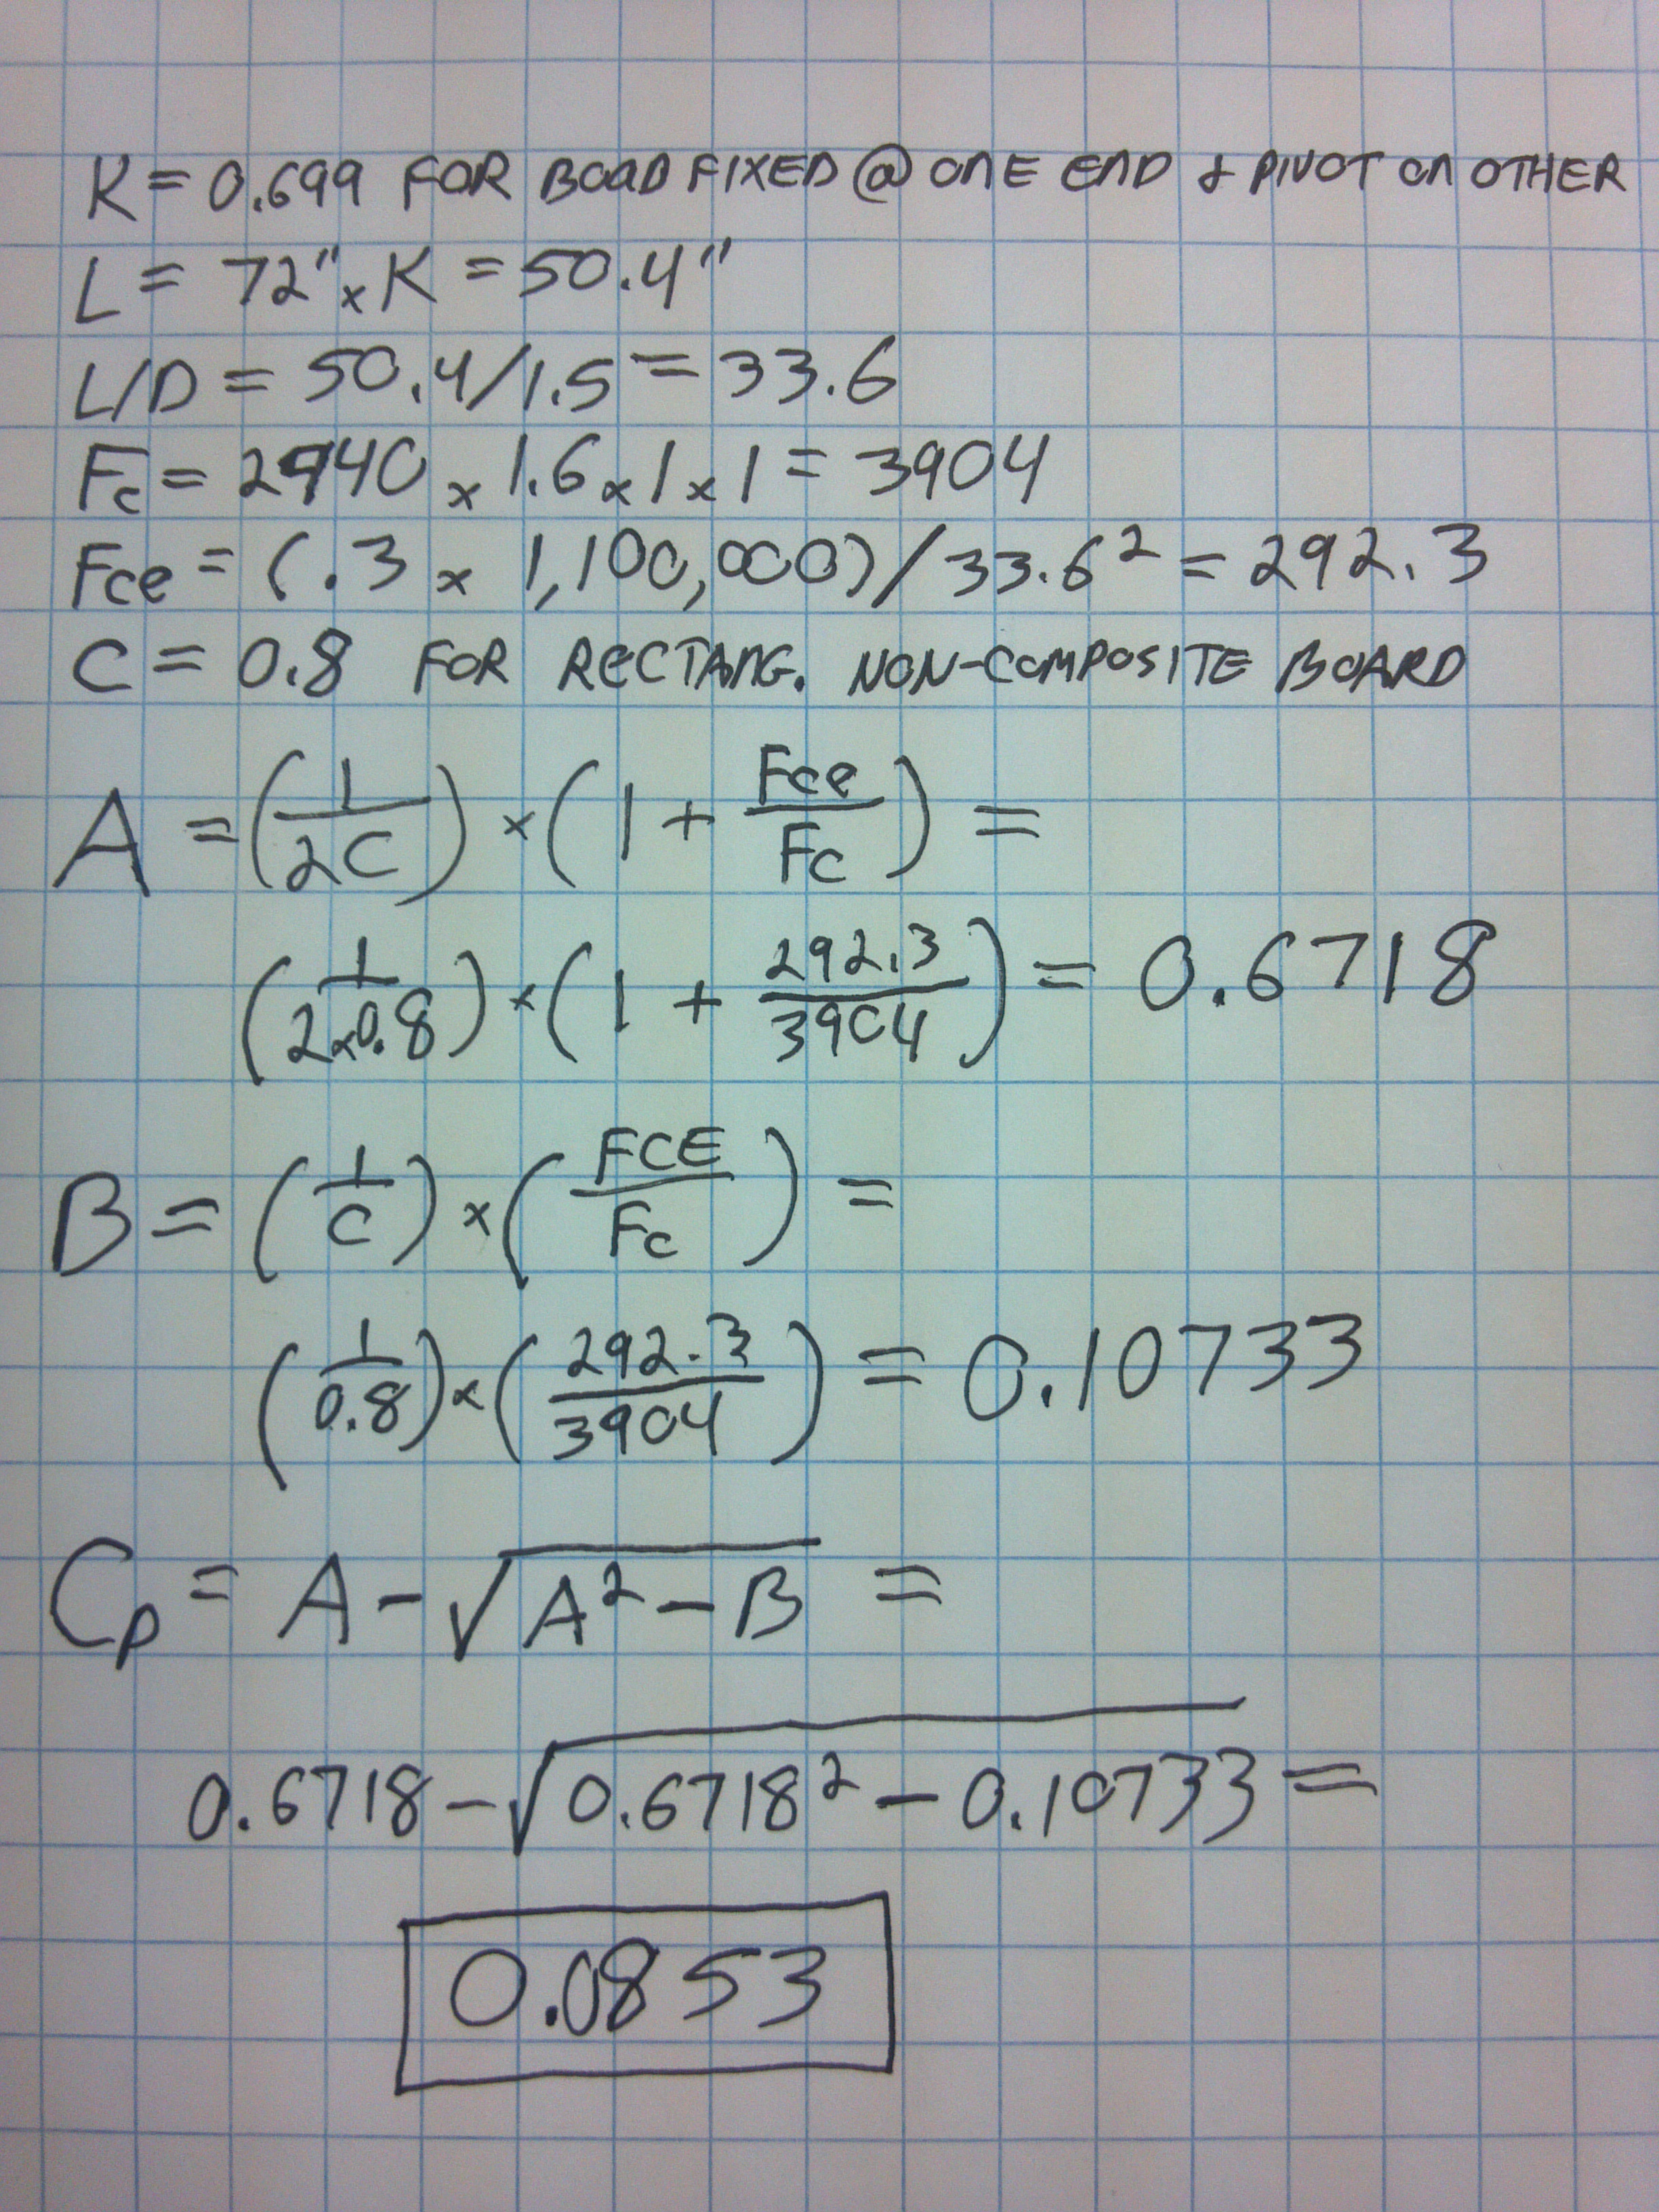 K = 0.699 FOR BOAD FIXED @ ONE END & PIVOT ON OTHER
L = 72" x K = 50.4"
L/D = 50.4/1.5 = 33.6
Fc = 2440 x 1.6 x 1 x 1 = 3904
Fce = (.3 x 1,100,000) / 33.6² = 292.3
C = 0.8 FOR RECTANG. NON-COMPOSITE BOARD
A = (1/2C) x (1 + Fce/Fc) =
(1/2x0.8) x (1 + 292.3/3904) = 0.6718
B = (1/C) x (FCE/Fc) =
(1/0.8) x (292.3/3904) = 0.10733
Cp = A - √A² - B =
0.6718 - √0.6718² - 0.10733 =
0.0853